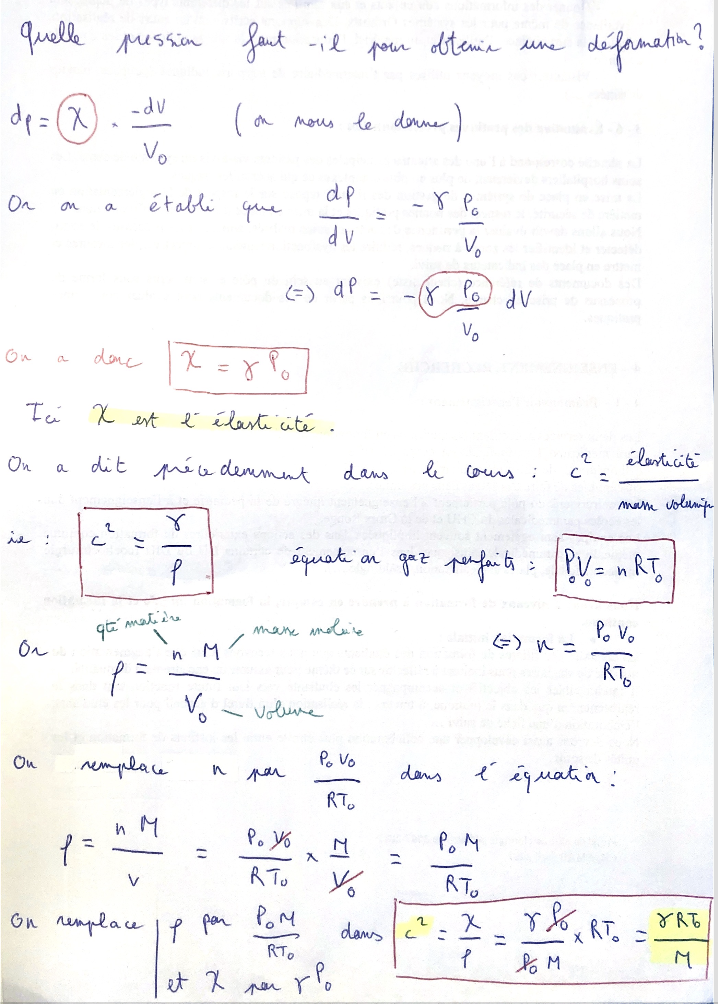 Quelle pression faut-il pour obtenir une déformation?
dp = χ . -dV/V₀ (on nous le donne)
Or on a établi que dP/dV = - γ P₀/V₀
(=) dP = - γ P₀/V₀ dV
On a donc χ = γ P₀
Ici χ est l'élasticité.
On a dit précédemment dans le cours : c² = élasticité/masse volumiq
ie : c² = γ/ρ équation gaz parfaits : P₀V₀ = n RT₀
qté matière masse molaire
Or ρ = n M/V₀ (=) n = P₀ V₀/RT₀
volume
On remplace n par P₀ V₀/RT₀ dans l'équation :
ρ = n M/v = P₀ V₀/RT₀ × M/V₀ = P₀ M/RT₀
On remplace ρ par P₀ M/RT₀ dans c² = χ/ρ = γ P₀/P₀ M × RT₀ = γ RT₀/M
et χ par γ P₀